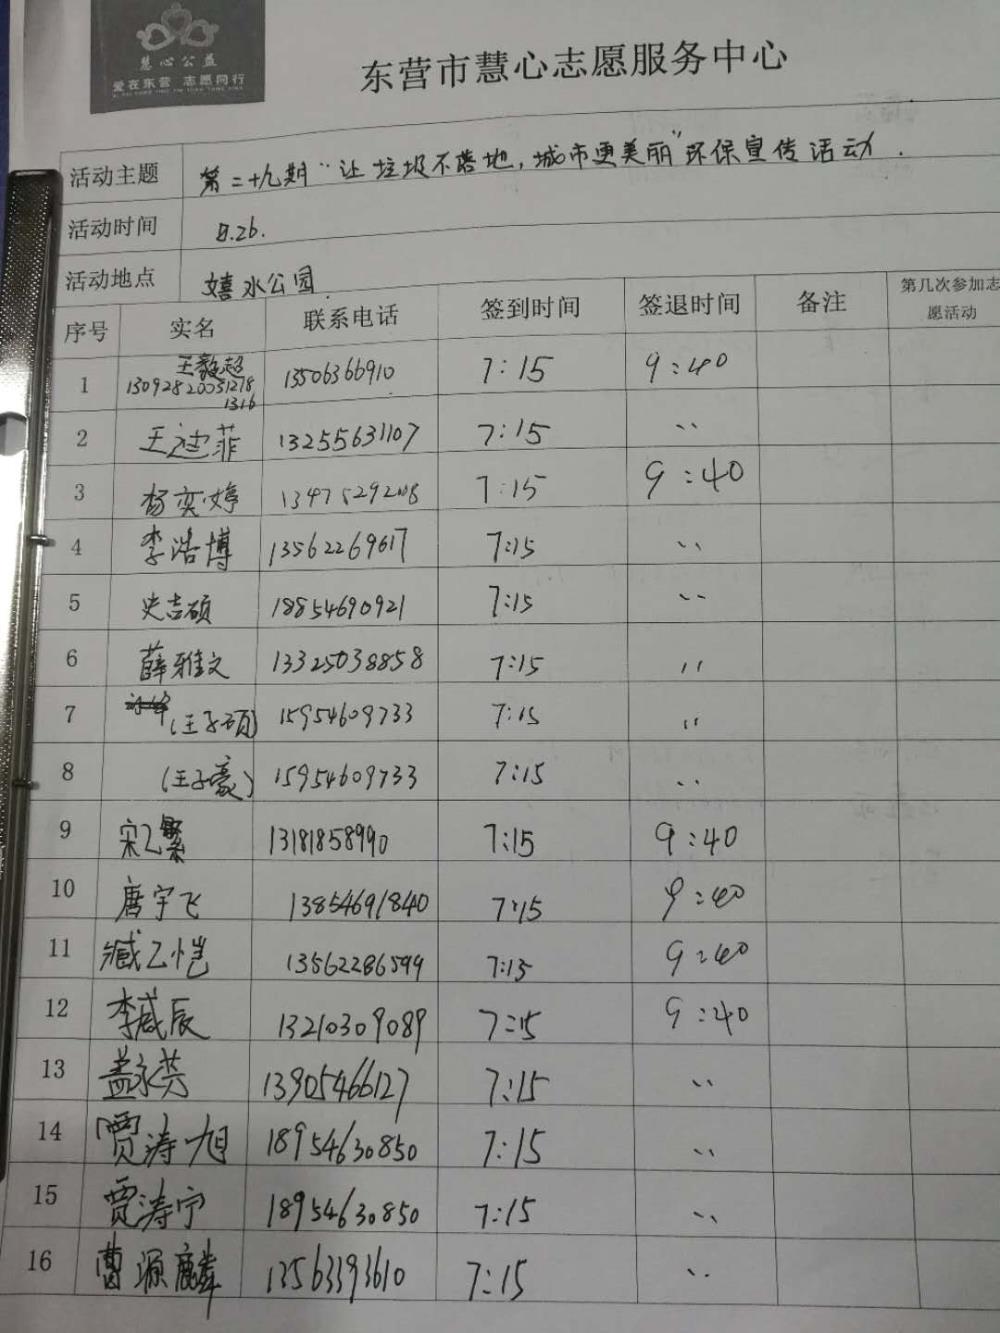 慧心公益
爱在东营 志愿同行
东营市慧心志愿服务中心
活动主题 第二十九期“让垃圾不落地,城市更美丽”环保宣传活动.
活动时间 8.26.
活动地点 嬉水公园
序号 实名 联系电话 签到时间 签退时间 备注 第几次参加志愿活动
1 王毅超 13506366910 7:15 9:40
2 王迪菲 13255631107 7:15 〃
3 杨奕婷 7:15 9:40
4 李浩博 13562269617 7:15 〃
5 史吉硕 18854690921 7:15 〃
6 薛雅文 13325038858 7:15 〃
7 (王子硕) 15954609733 7:15 〃
8 (王子豪) 15954609733 7:15 〃
9 宋乙繁 13181858990 7:15 9:40
10 唐宇飞 13854691840 7:15 9:40
11 臧乙恺 13562286599 7:15 9:40
12 李咸辰 13210309089 7:15 9:40
13 盖永芳 13905466127 7:15 〃
14 贾涛旭 18954630850 7:15 〃
15 贾涛宁 18954630850 7:15 〃
16 曹源麟 13563393610 7:15 〃